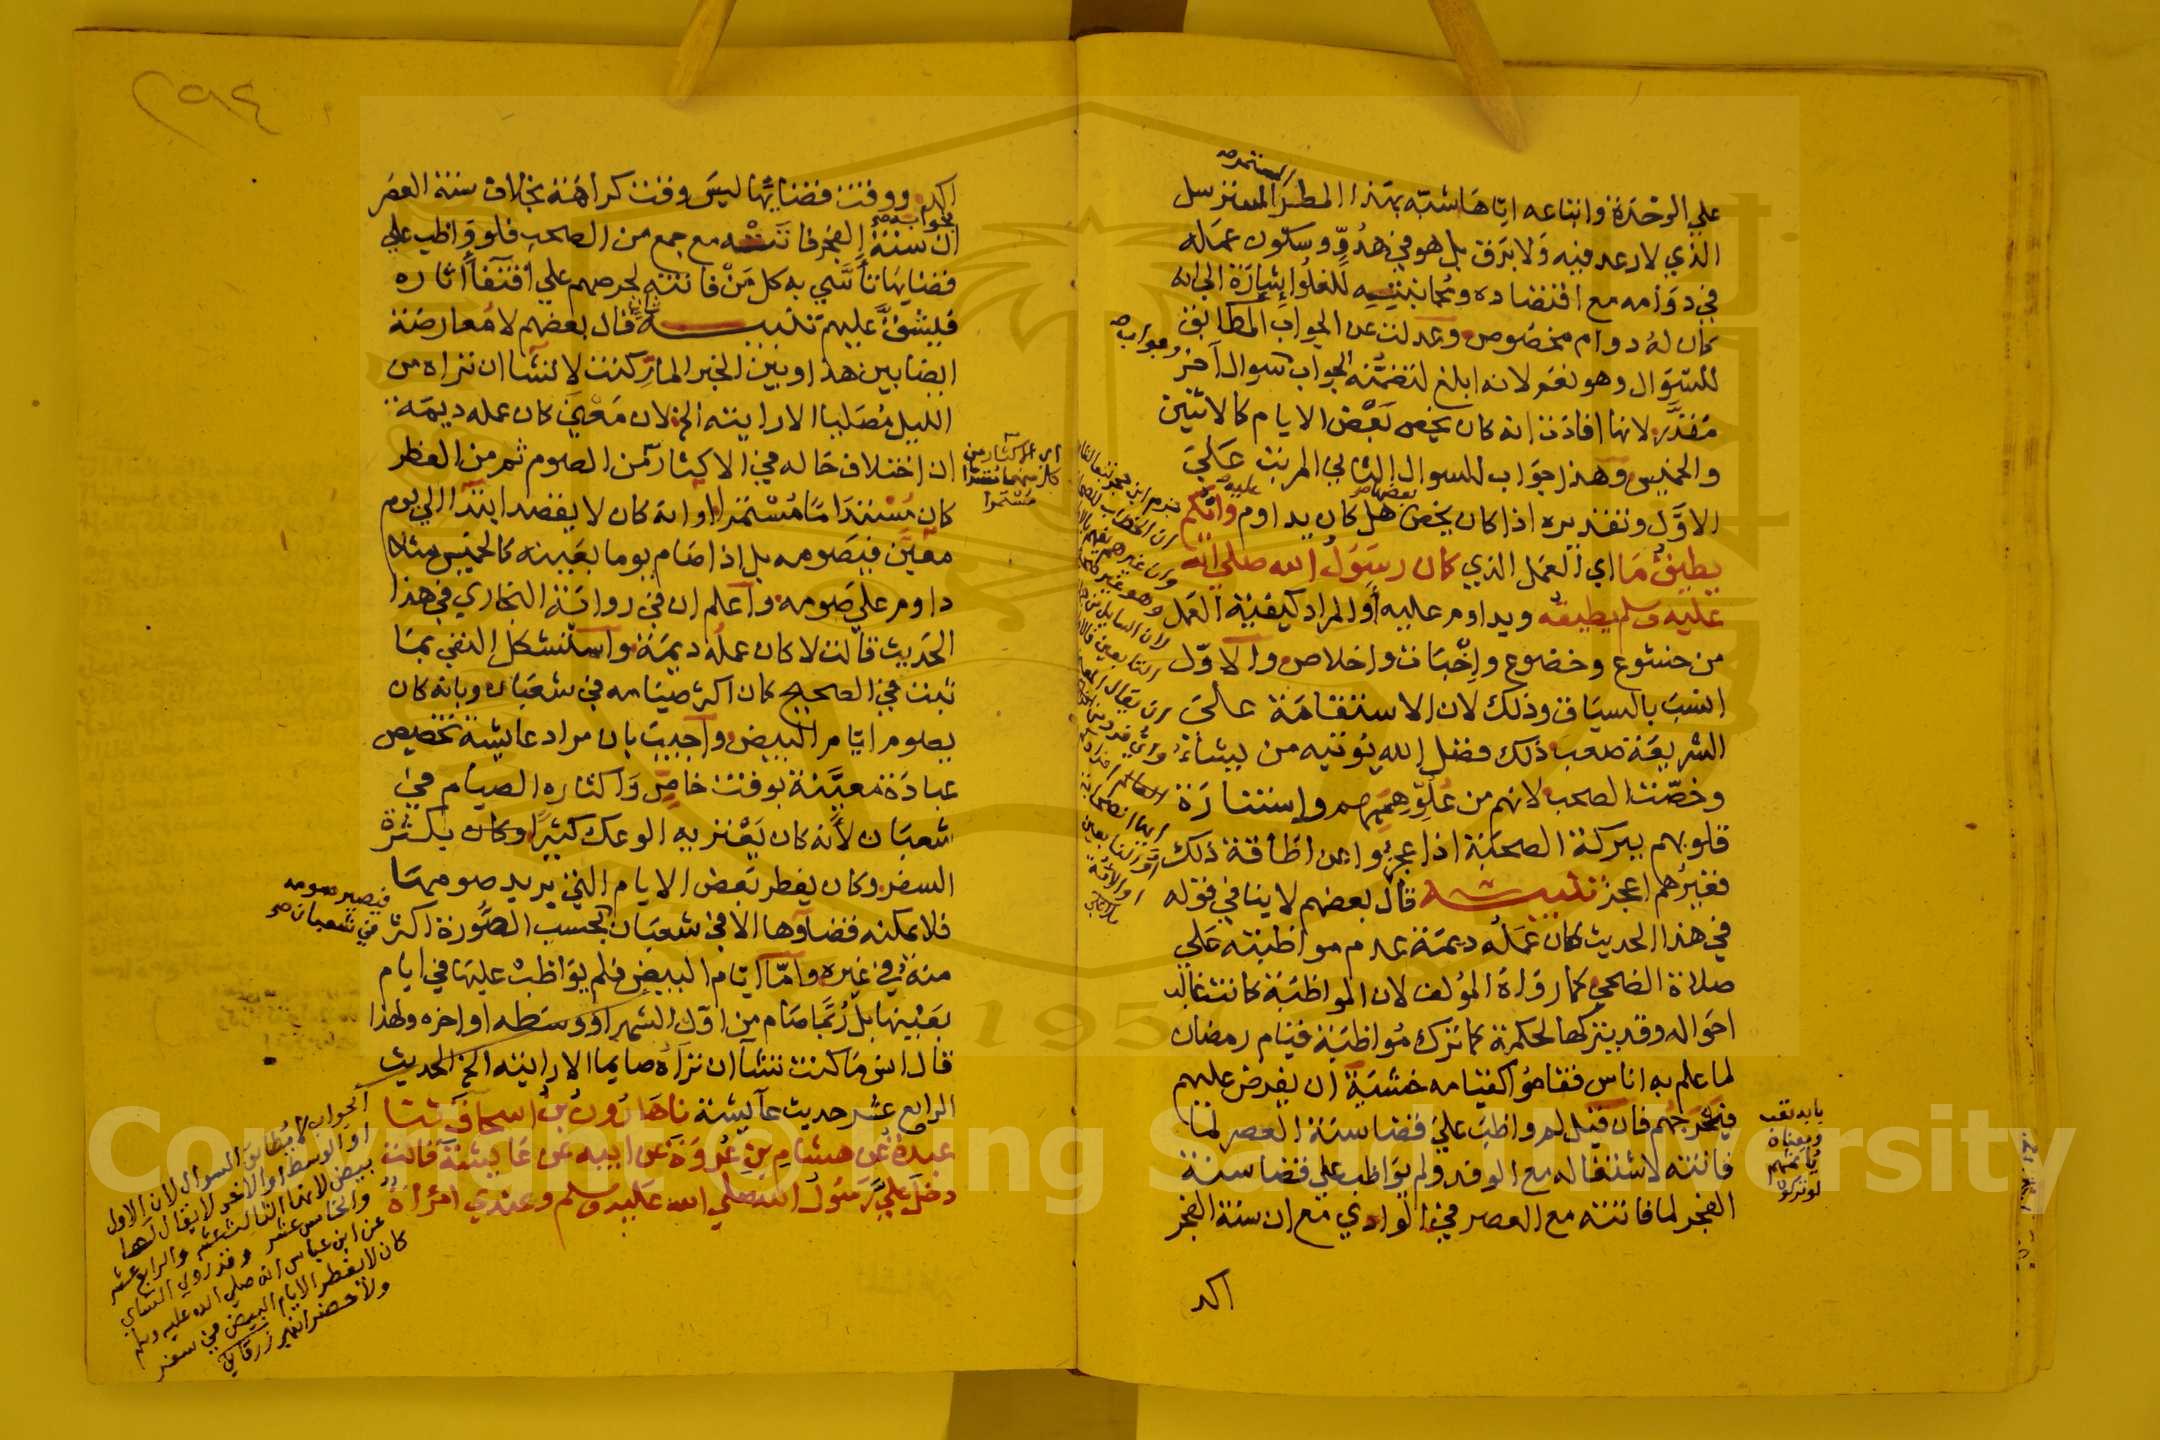 المستمر صح
علي الوحدة وانباعه اياها شبه بهذا المطر المسترسل
الذي لا رعد فيه ولا برق بل هو في هدوّ وسكون عمله
في دوامه مع اقتضاده ومجانبتيه للغلوا اشارة الي انه
كان له دوام مخصوص وعدلت عن الجواب المطابق
للسوال وهو نعم لانه ابلغ لتضمنه الجواب سوال آخر
مقدّر لانها افادت انه كان يخص بعض الايام كالاثنين
والخميس وهذا جواب للسوال الثاني المرتب علي
الاول وتقديره اذا كان يخص بعضها هل كان يداوم عليه وايكم
يطيق ما اي العمل الذي كان رسول الله صلي الله
عليه وسلم يطيقه ويداوم عليه أو المراد كيفية العمل
من خشوع وخضوع واخبات واخلاص والاول
انسب بالسياق وذلك لان الاستقامة علي
الشريعة صعب ذلك فضل الله يؤتيه من يشاء
وخصّت الصحب لانهم من علوّ هممهم واستنارة
قلوبهم ببركة الصحبة اذا عجزوا عن اطاقة ذلك
فغيرهم اعجز تنبيه قال بعضهم لا ينافي قوله
في هذا الحديث كان عمله ديمة عدم مواظبته علي
صلاة الضحي كما رواه المؤلف لان المواظبة كانت غالب
احواله وقد يتركها لحكمة كما ترك مواظبة قيام رمضان
لما علم به اناس فقاموا كقيامه خشية ان يفرض عليهم
فيحرجهم فان قيل لم واظب علي قضا سنة العصر لما
فاتته لاشتغاله مع الوفد ولم يواظب علي قضا سنة
الفجر لما فاتته مع العصر في الوادي مع ان سنة الفجر
اكد
وجواب صح
اكد ووقت قضايها ليس وقت كراهة بخلاف سنة العصر
بجواب صح
ان سنة الفجر فاتته مع جمع من الصحب فلو واظب علي
قضايها تأسّي به كل من فاتته لحرصهم علي اقتفا آثاره
فيشق عليهم تنبيه قال بعضهم لا معارضة
ايضا بين هذا وبين الخبر المار كنت لا تشا ان تراه من
الليل مصليا الا رايته الخ لان معني كان عمله ديمة
ان اختلاف حاله في الاكثار من الصوم ثم من الفطر
كان مستداما مستمرا او انه كان لا يقصد ابتدا الي يوم
معيّن فيصومه بل اذا صام يوما بعينه كالخميس مثلا
داوم علي صومه واعلم ان في رواية البخاري في هذا
الحديث قالت لا كان عمله ديمة واستشكل النفي بما
ثبت في الصحيح كان اكثر صيامه في شعبان وبانه كان
يصوم ايام البيض واجيب بان مراد عايشة تخصيص
عبادة معيّنة بوقت خاص واكثاره الصيام في
شعبان لأنه كان يعتريه الوعك كثيرا وكان يكثر
السفر وكان يفطر بعض الايام التي يريد صومها
فلا يمكنه قضاوها الا في شعبان فيصير صومه في شعبان صح بحسب الصورة اكثر
منه في غيره وامّا ايام البيض فلم يواظب عليها في ايام
بعينها بل ربما صام من اول الشهر او وسطه او اخره ولهذا
قال انس ما كنت تشا ان تراه صايما الا رايته الخ الحديث
الرابع عشر حديث عايشة نا هارون بن اسحاق ثنا
عبدة عن هشام بن عروة عن ابيه عن عايشة قالت
دخل علي رسول الله صلي الله عليه وسلم وعندي امراة
الجواب لا يطابق السوال لان الاول
او الوسط او الاخر لا يقال لها
بيض لانها الثالث عشر والرابع عشر
والخامس عشر وقد روي النساي
عن ابن عباس انه صلي الله عليه وسلم
كان لا يفطر الايام البيض في سفر
ولا حضر
٢٩٤
1957
Copyright © King Saud University